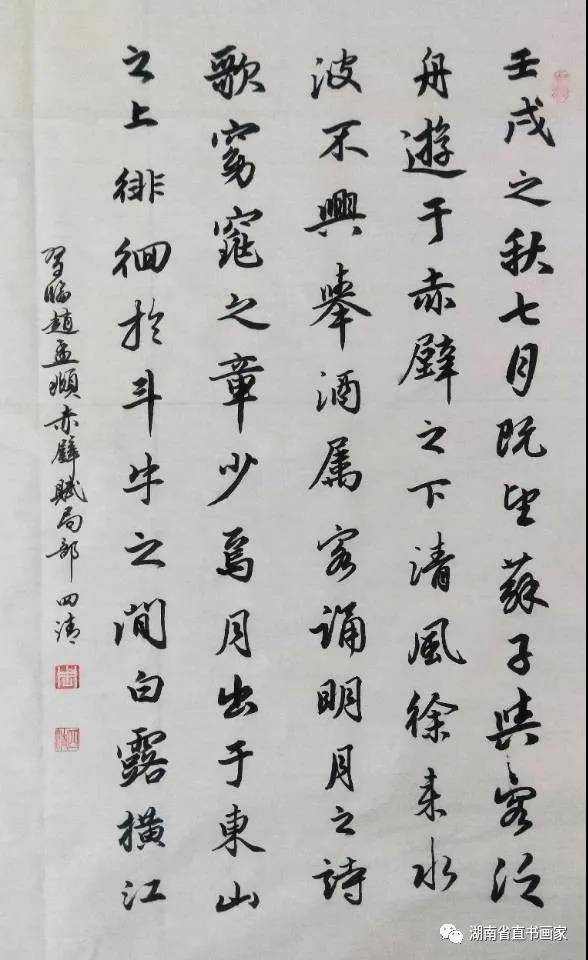 壬戌之秋七月既望蘇子與客泛
舟遊于赤壁之下清風徐来水
波不興舉酒属客誦明月之詩
歌窈窕之章少焉月出于東山
之上徘徊於斗牛之間白露橫江
習臨趙孟頫赤壁賦局部 四清
湖南省直书画家